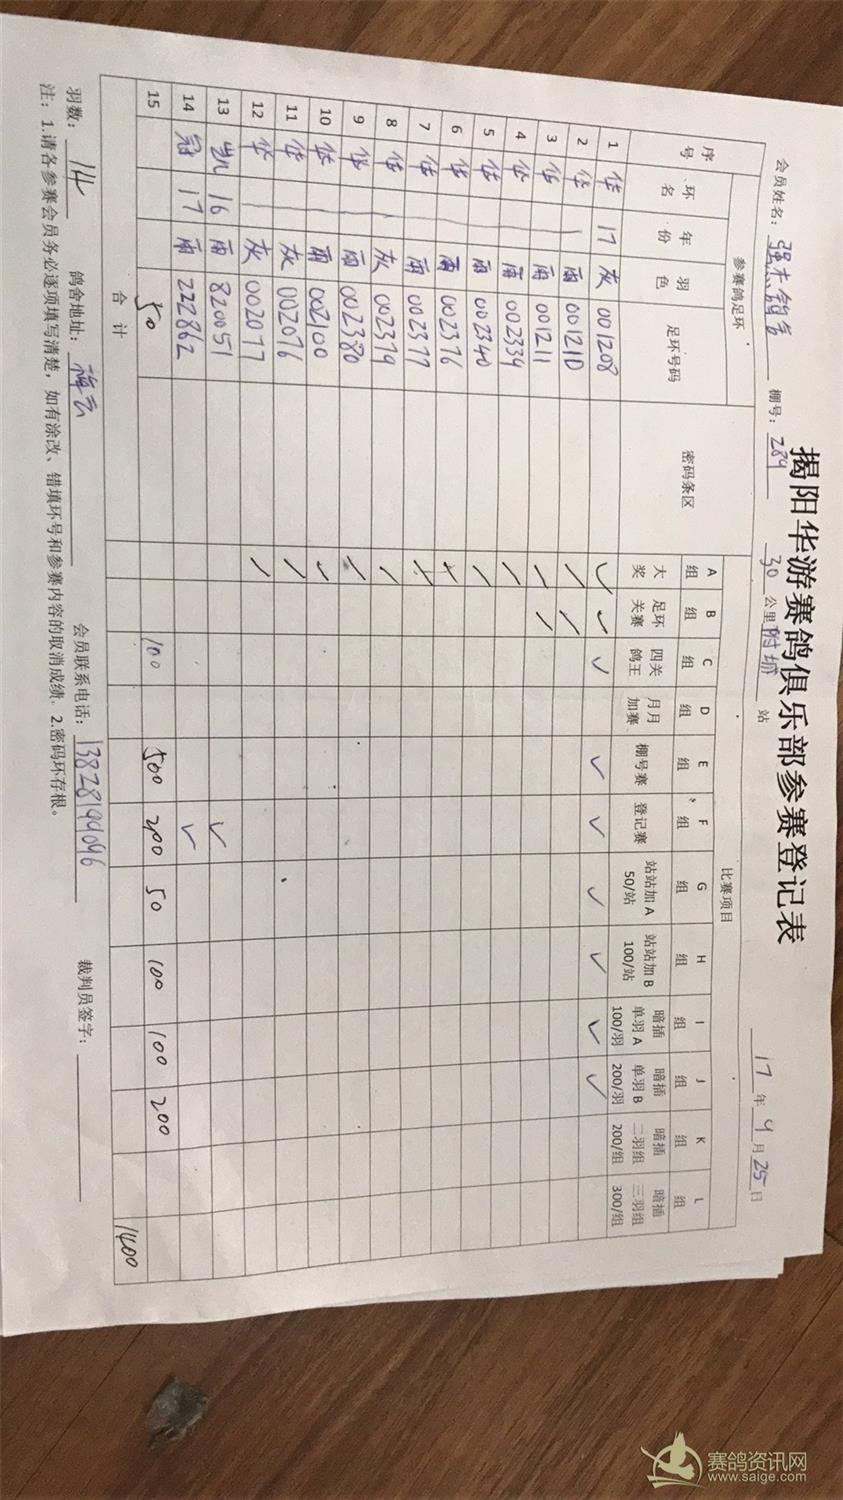 揭阳华游赛鸽俱乐部参赛登记表
会员姓名： 棚号：289 30公里附城站 17年9月25日
参赛鸽足环 密码条区 比赛项目
序号 环名 年份 羽色 足环号码 A组 B组 C组 D组 E组 F组 G组 H组 I组 J组 K组 L组
大奖 足环关赛 四关鸽王 月月加赛 棚号赛 登记赛 站站加A 50/站 站站加B 100/站 暗插单羽A 100/羽 暗插单羽B 200/羽 暗插二羽组 200/组 暗插三羽组 300/组
1 华 17 灰 001208 ✓ ✓ ✓ ✓ ✓ ✓ ✓ ✓ ✓
2 华 雨 001210 ✓ ✓
3 华 雨 001211 ✓ ✓
4 华 雨 002339 ✓
5 华 雨 002340 ✓
6 华 雨 002376 ✓
7 华 雨 002377 ✓
8 华 灰 002379 ✓
9 华 雨 002380 ✓
10 华 雨 002100 ✓
11 华 灰 002076 ✓
12 华 灰 002077 ✓
13 凯 16 雨 820051 ✓
14 冠 17 雨 222862 ✓
15 50 100 500 200 50 100 100 200
合计 1400
羽数：14 鸽舍地址：梅云 会员联系电话：13828199096 裁判员签字：
注：1.请各参赛会员务必逐项填写清楚，如有涂改、错填环号和参赛内容的取消成绩．2.密码环存根。
赛鸽资讯网
www.saige.com